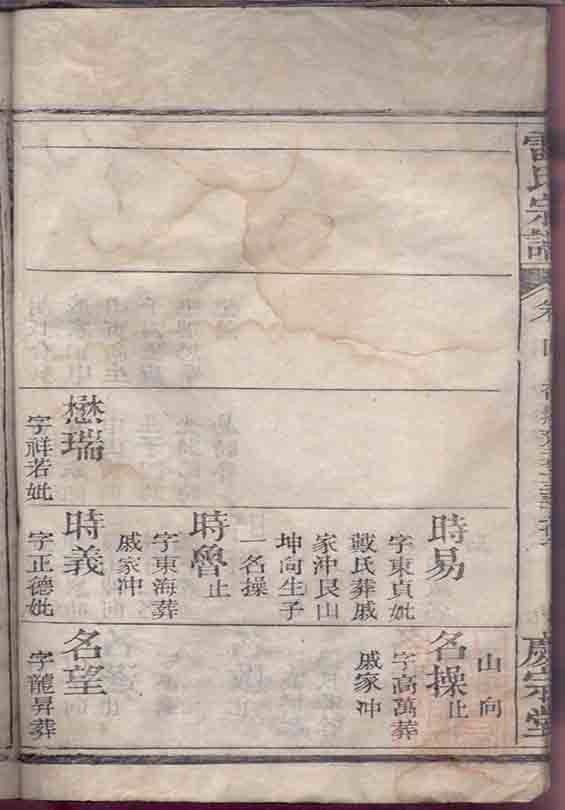 雷氏宗譜
卷四
慶宗堂
懋瑞
字祥若妣
時易
字東貞妣
戴氏葬戚
家冲艮山
坤向生子
一名操
時魯止
字東海葬
戚家冲
時義
字正德妣
山向
名操止
字高萬葬
戚家冲
名望
字龍昇葬